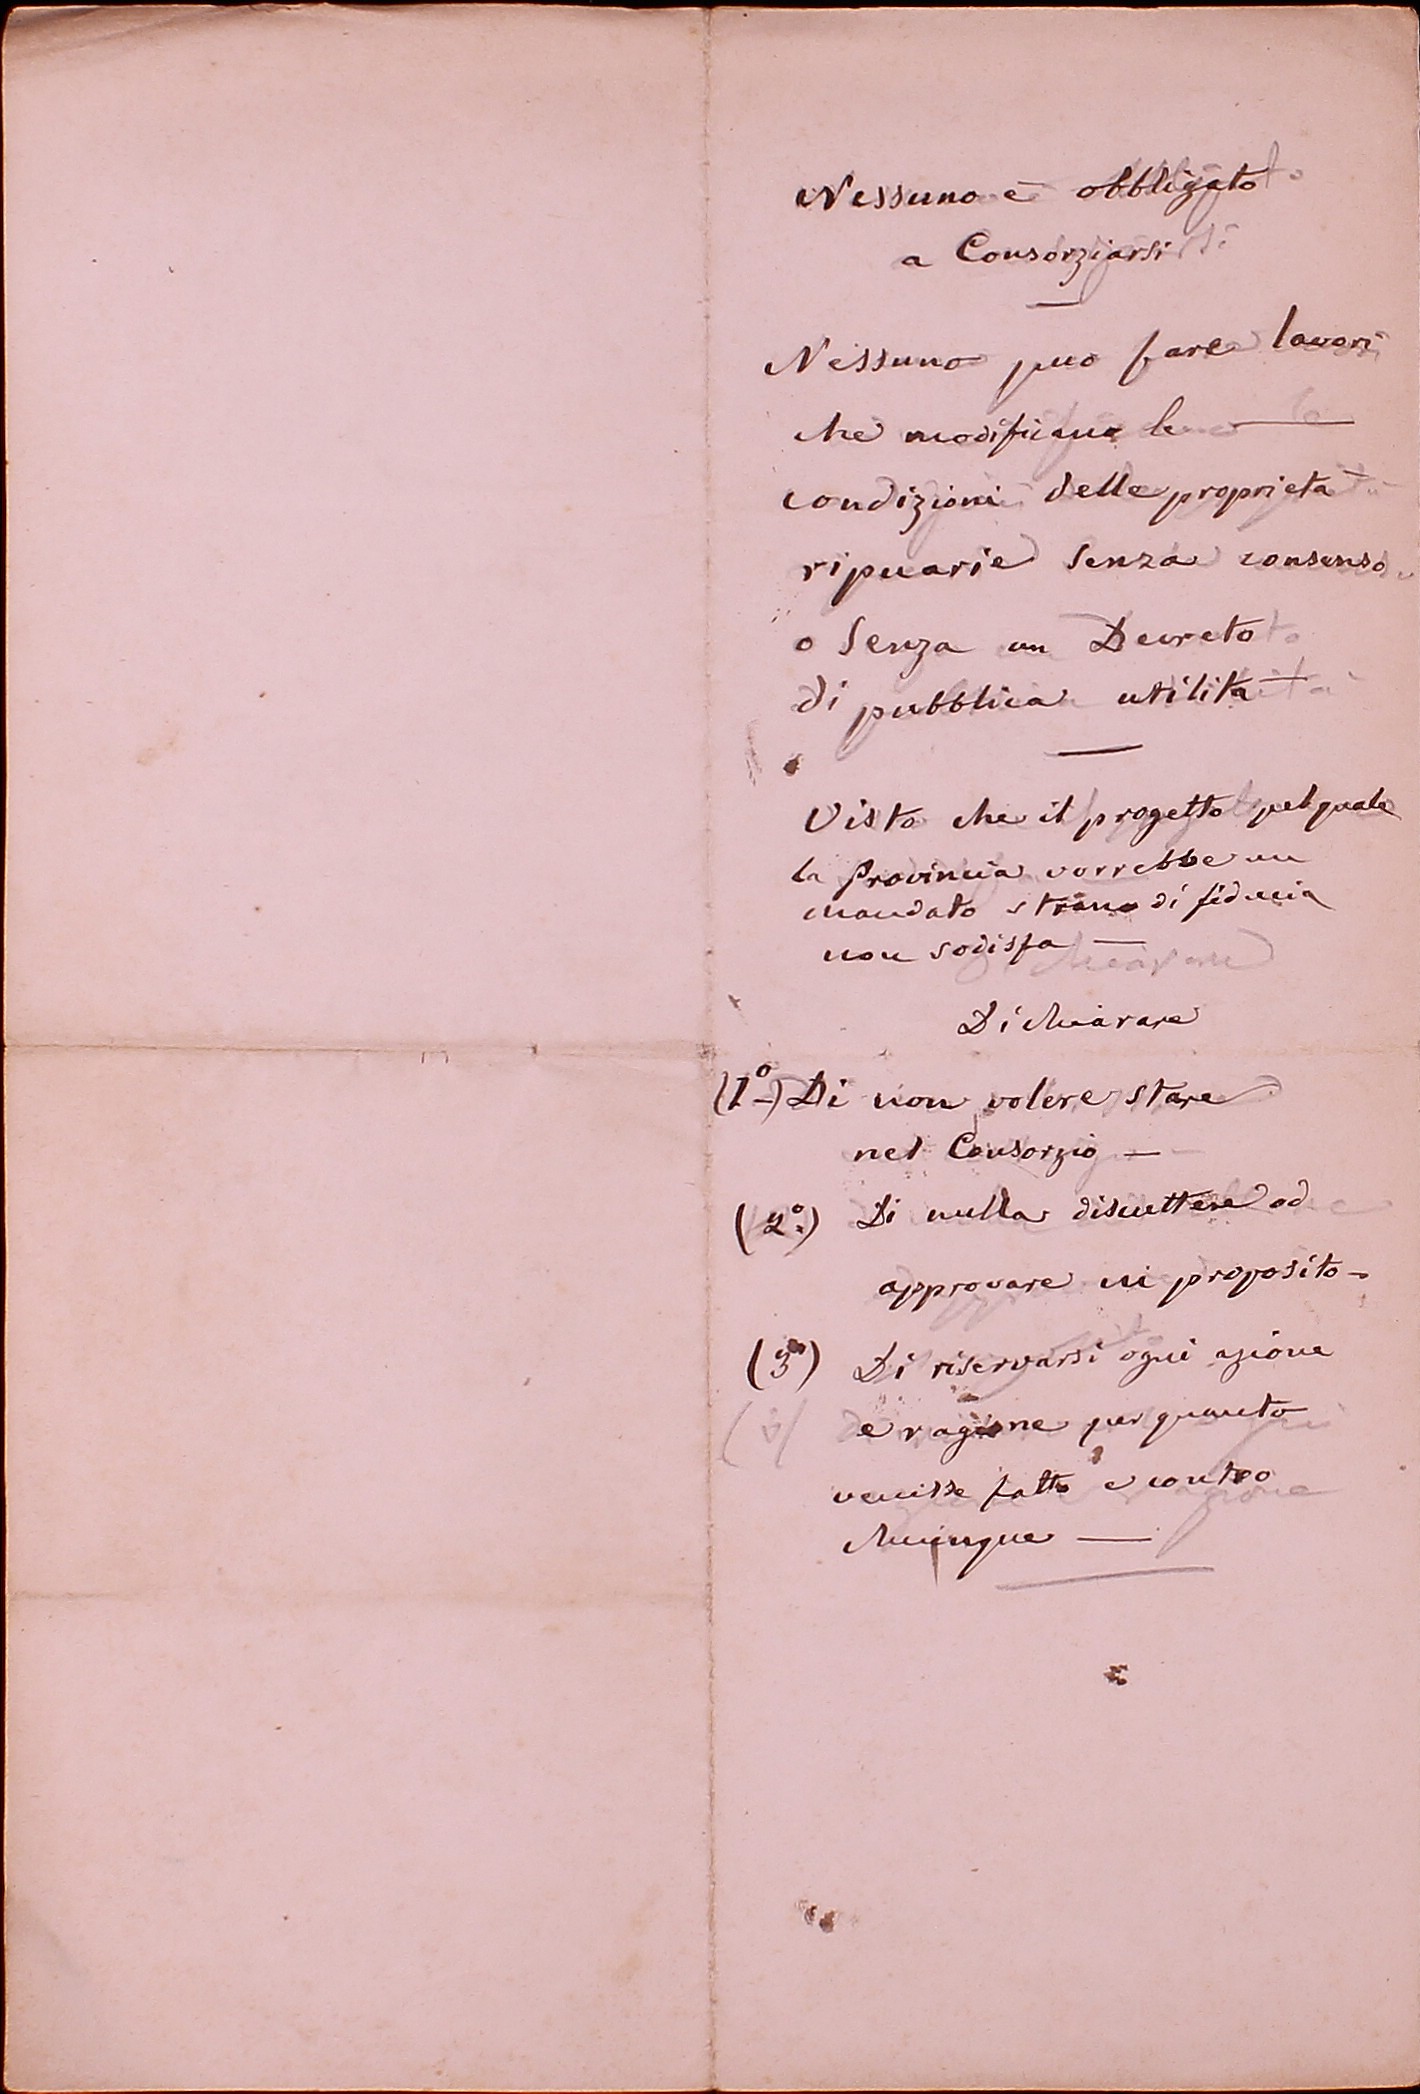 Nessuno è obbligato
a Consorziarsi
Nessuno puo fare lavori
che modificano le
condizioni delle proprietà
ripuarie senza consenso
o Senza un Decreto
di pubblica utilità
Visto che il progetto pel quale
la Provincia vorrebbe un
mandato strano di fiducia
non sodisfa —
Dichiarare
(1º) Di non volere stare
nel Consorzio —
(2º) Di nulla discuttere od
approvare in proposito —
(3º) Di riservarsi ogni azione
e ragione per quanto
venisse fatto e contro
chiunque —